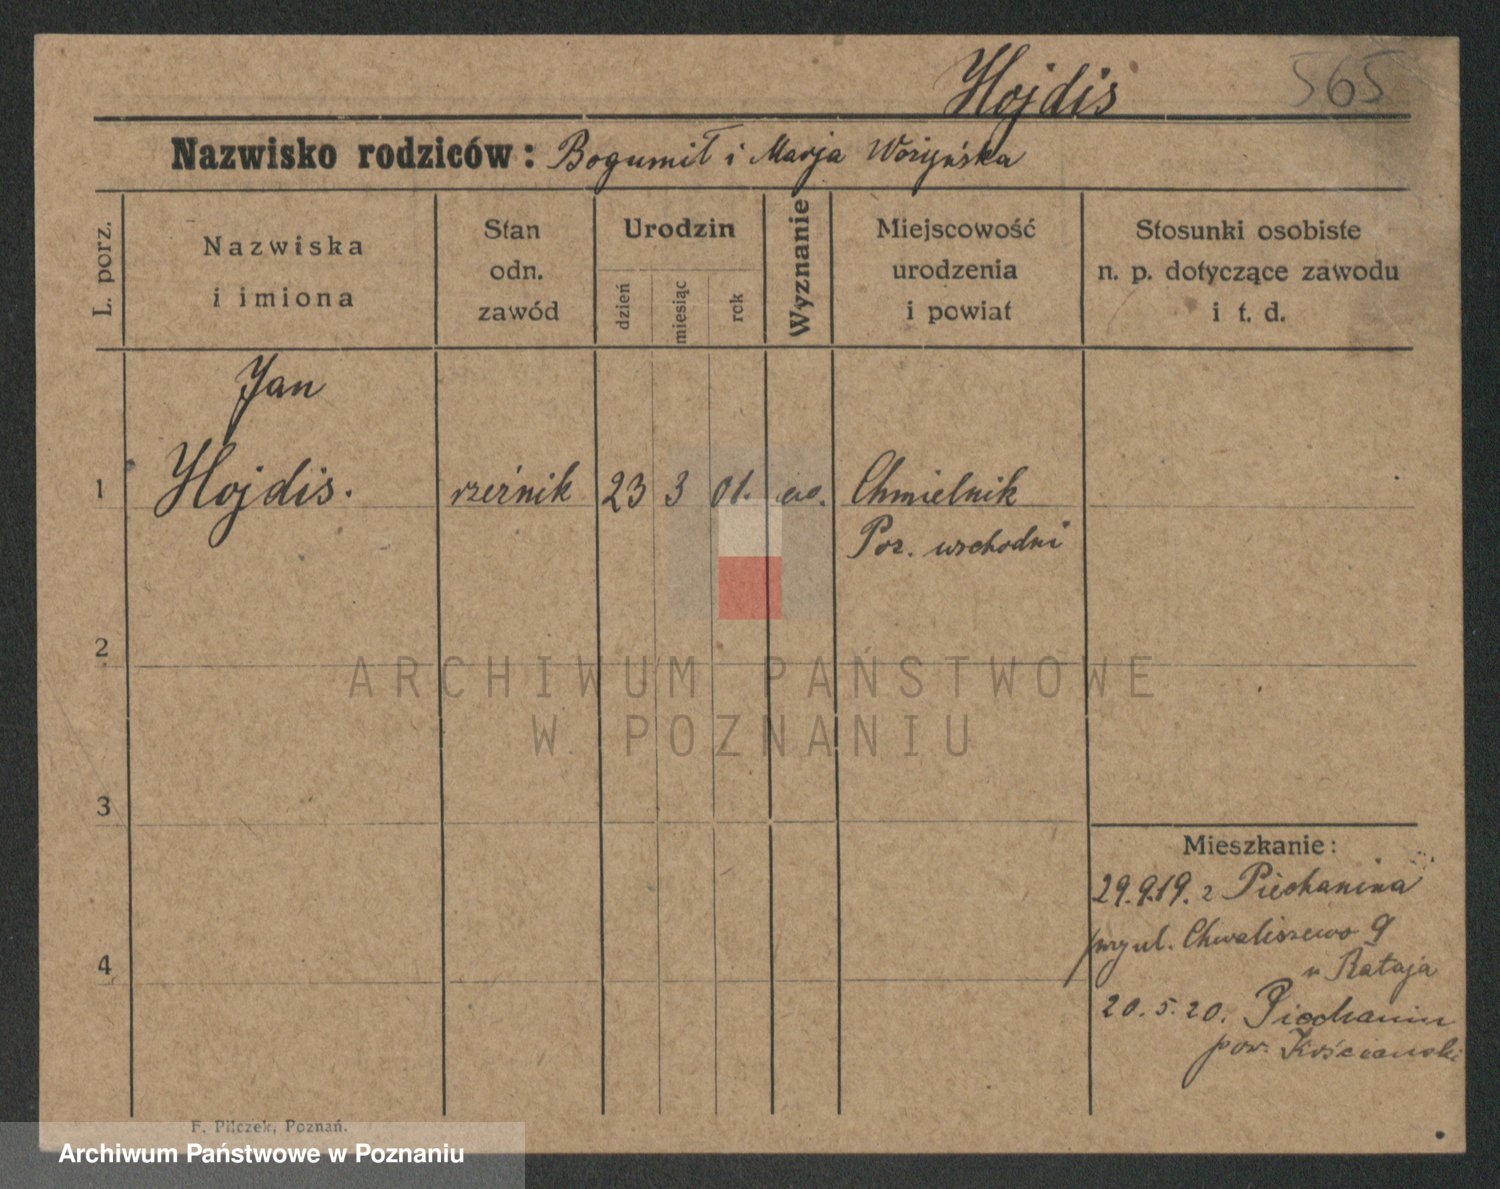 Hojdis 565
Nazwisko rodziców: Bogumił i Marja
L. porz.
Nazwiska
i imiona
Stan
odn.
zawód
Urodzin
dzień
miesiąc
rok
Wyznanie
Miejscowość
urodzenia
i powiat
Stosunki osobiste
n. p. dotyczące zawodu
i t. d.
Jan
1 Hojdis. rzeźnik 23 3 01. Chmielnik
Poz. wschodni
2
3
4
Mieszkanie:
29.9.19. z Piechanina
przy ul. Chwaliszewo 9
u Rataja
20.5.20. Piechanin
pow. Kościański
F. Pilczek, Poznań.
ARCHIWUM PAŃSTWOWE
W POZNANIU
Archiwum Państwowe w Poznaniu